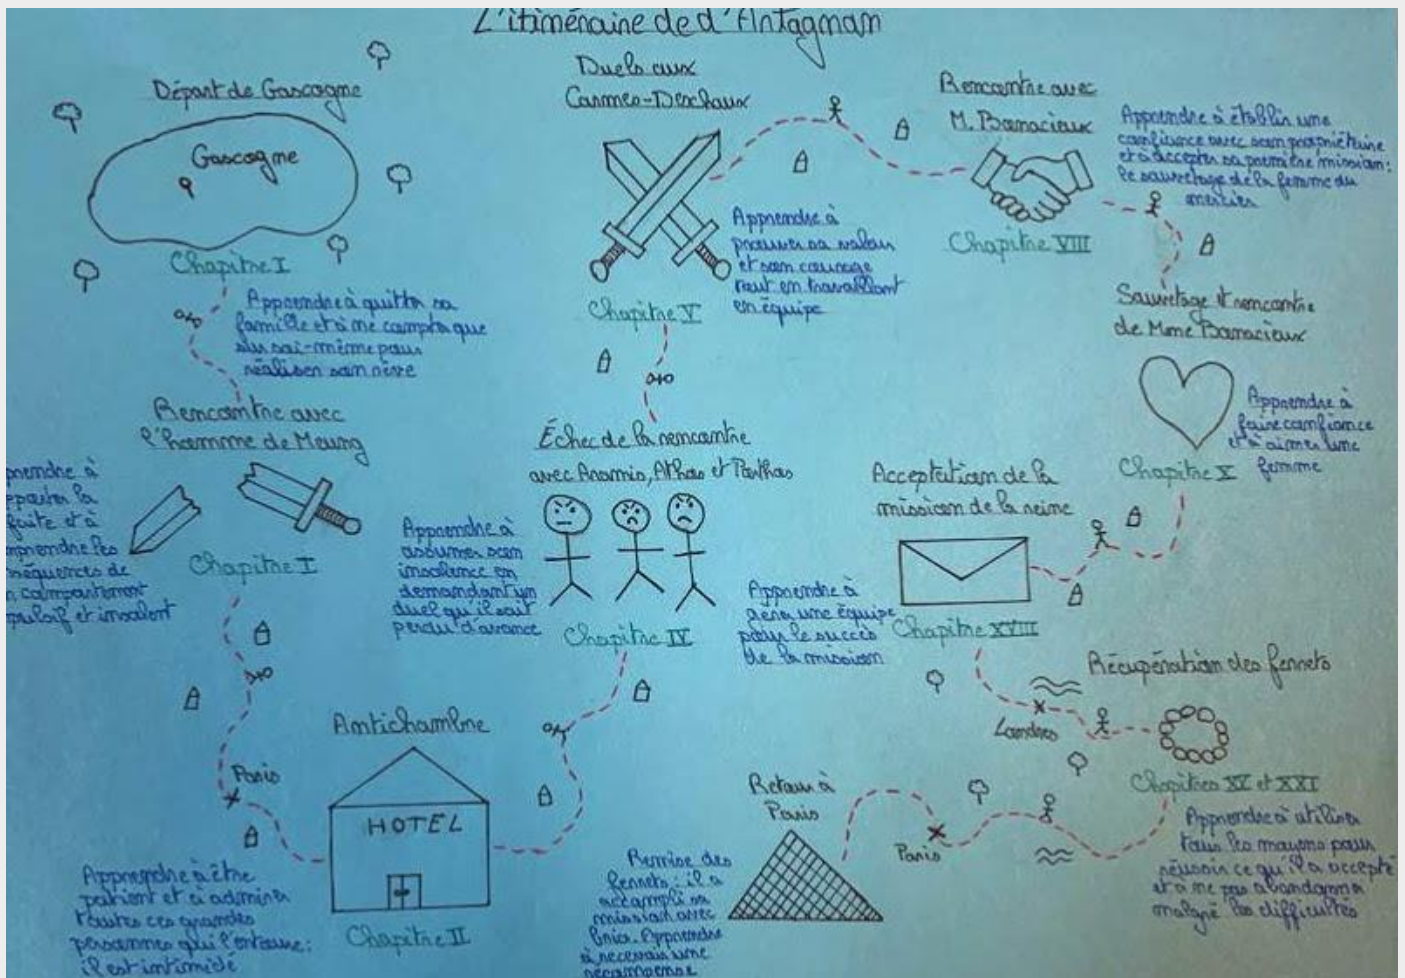 L'itinéraire de d'Artagnan
Départ de Gascogne
Gascogne
Chapitre I
Apprendre à quitter sa
famille et à ne compter que
sur soi-même pour
réaliser son rêve
Rencontre avec
l'homme de Meung
prendre à
la
faite et à
prendre les
séquences de
n comportement
pulsif et insolent
Chapitre I
Paris
Antichambre
HOTEL
Chapitre II
Apprendre à être
patient et à admirer
toutes ces grandes
personnes qui l'entoure :
il est intimidé
Échec de la rencontre
avec Aramis, Athos et Porthos
Apprendre à
assumer son
insolence en
demandant un
duel qu'il sait
perdu d'avance
Chapitre IV
Duels aux
Carmes-Deschaux
Apprendre à
prouver sa valeur
et son courage
tout en travaillant
en équipe
Chapitre V
Rencontre avec
M. Bonacieux
Apprendre à établir une
confiance avec son propriétaire
et à accepter sa première mission :
le sauvetage de la femme du
mercier
Chapitre VIII
Sauvetage et rencontre
de Mme Bonacieux
Apprendre à
faire confiance
et à aimer une
femme
Chapitre X
Acceptation de la
mission de la reine
Apprendre à
gérer une équipe
pour le succès
de la mission
Chapitre XVIII
Récupération des ferrets
Londres
Chapitres XX et XXI
Apprendre à utiliser
tous les moyens pour
réussir ce qu'il a accepté
et à ne pas abandonner
malgré les difficultés
Paris
Retour à
Paris
Remise des
ferrets : il a
accompli sa
mission avec
brio. Apprendre
à recevoir une
récompense